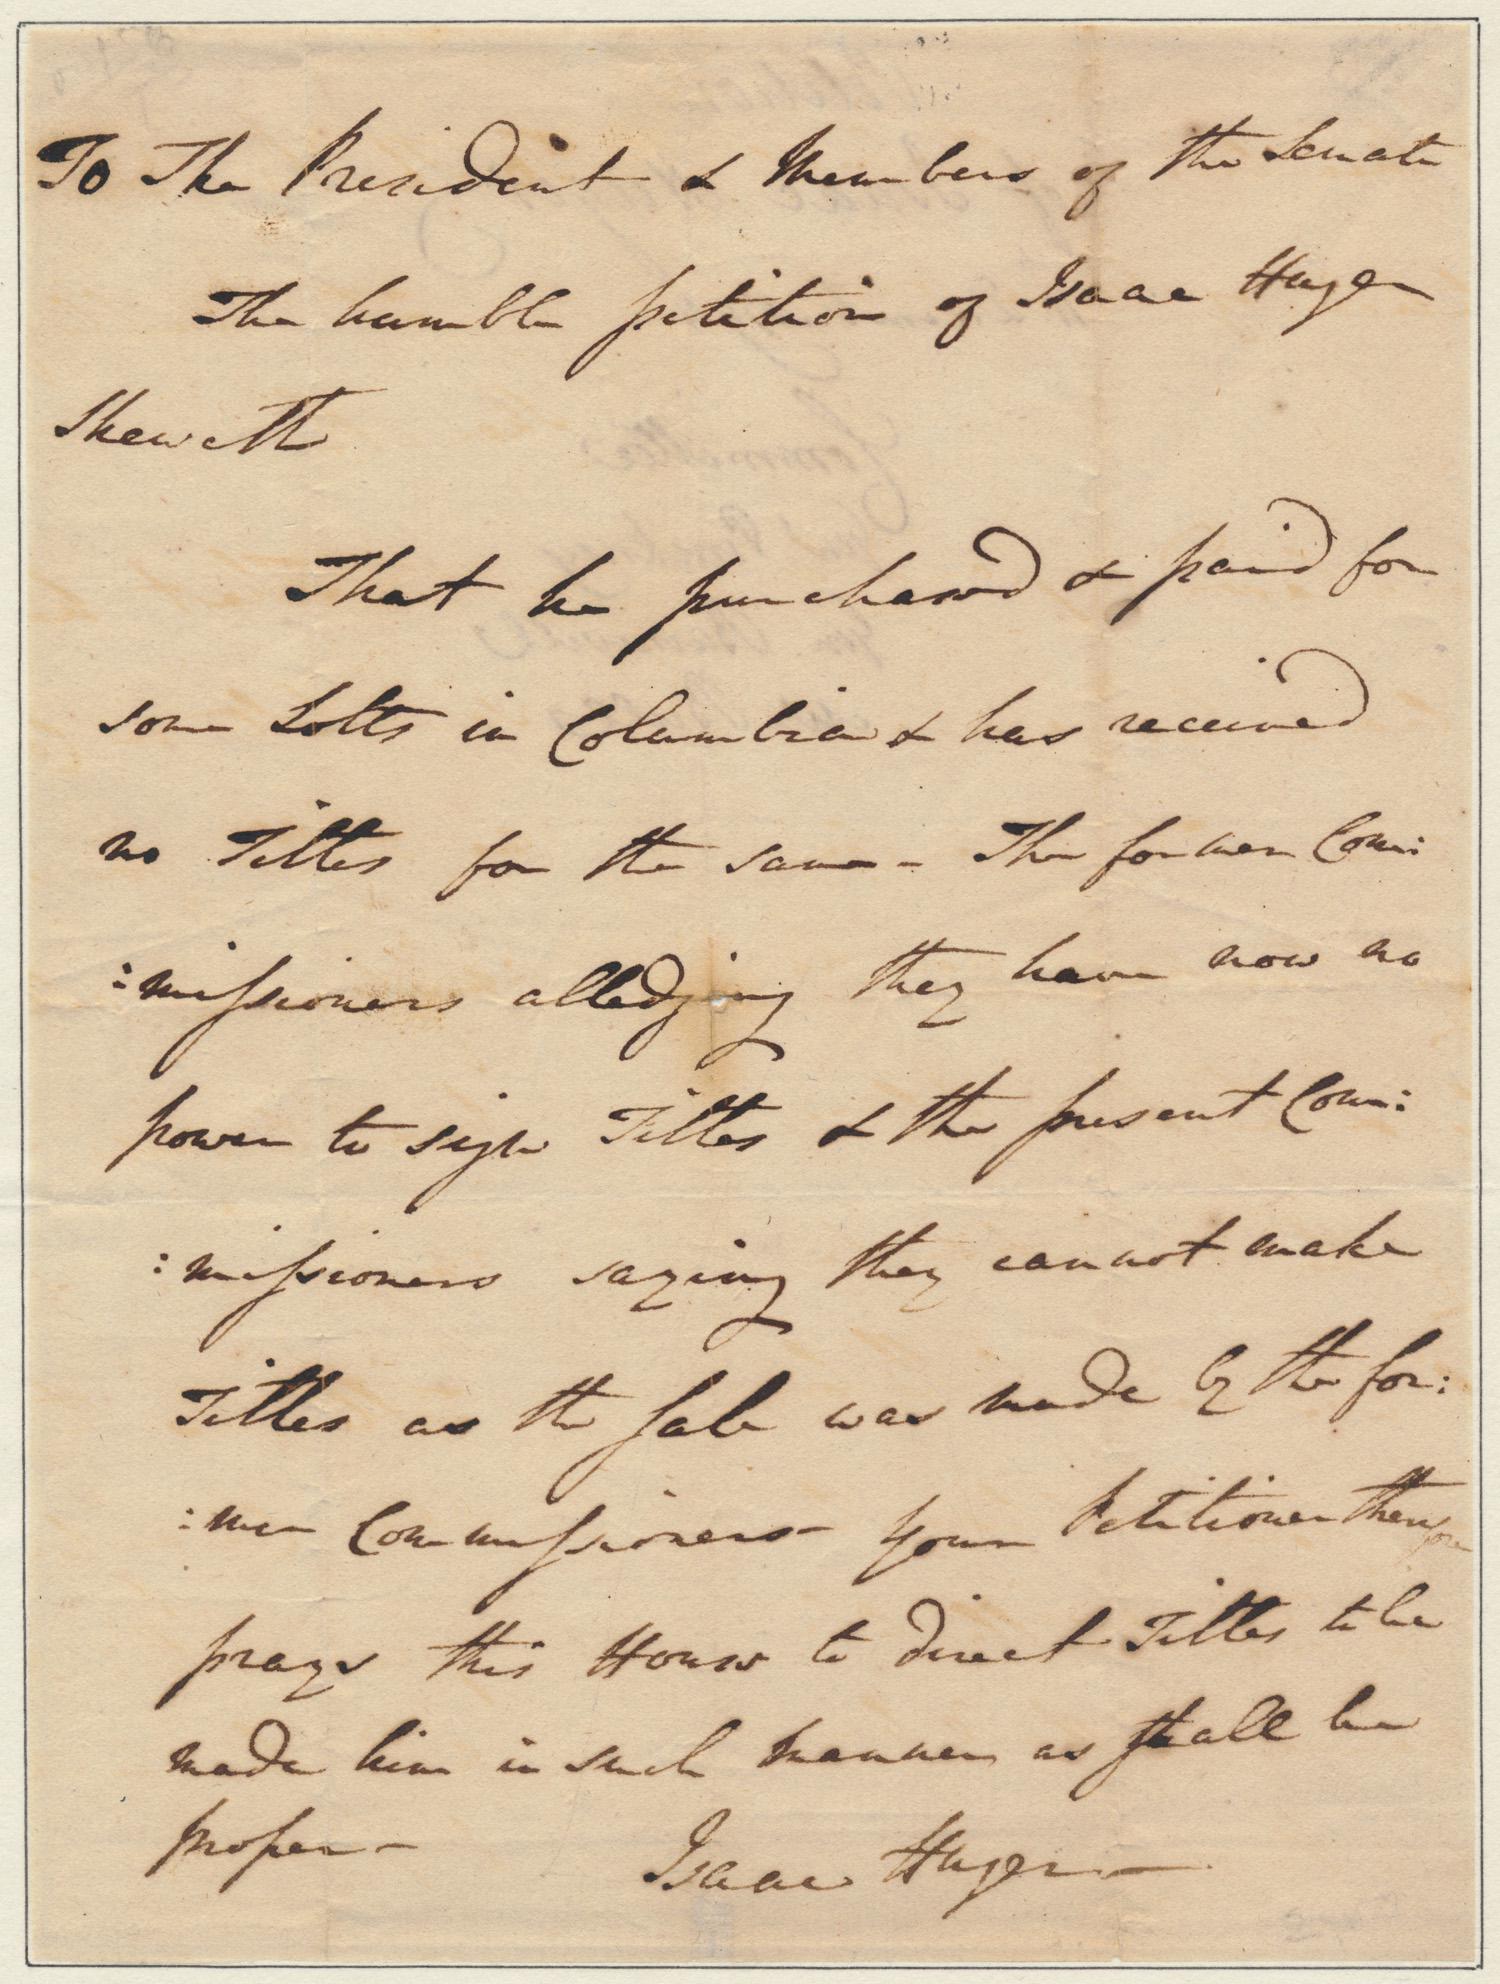 To The President & Members of the Senate
The humble petition of Isaac Huger
Sheweth
That he purchased & paid for
some Lotts in Columbia & has received
no Titles for the same - The former Com:
:missioners alledging they have now no
power to sign Titles & the present Com:
:missioners saying they cannot make
Titles as the sale was made by the for:
:mer Commissioners - Your Petitioner therefore
prays this House to direct Titles to be
made him in such manner as shall be
proper -
Isaac Huger -